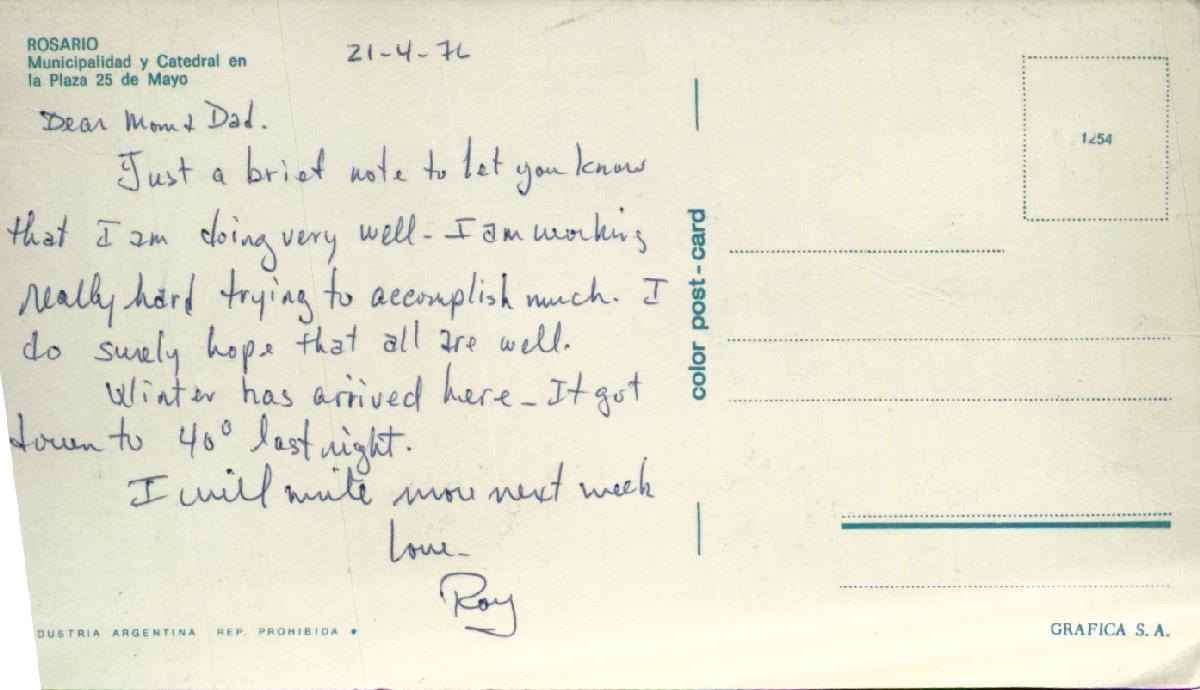 ROSARIO
Municipalidad y Catedral en
la Plaza 25 de Mayo
21-4-76
Dear Mom & Dad.
Just a brief note to let you know
that I am doing very well - I am working
really hard trying to accomplish much. I
do surely hope that all are well.
Winter has arrived here - It got
down to 40° last night.
I will write more next week
Love -
Roy
DUSTRIA ARGENTINA REP. PROHIBIDA
color post-card
1254
GRAFICA S. A.